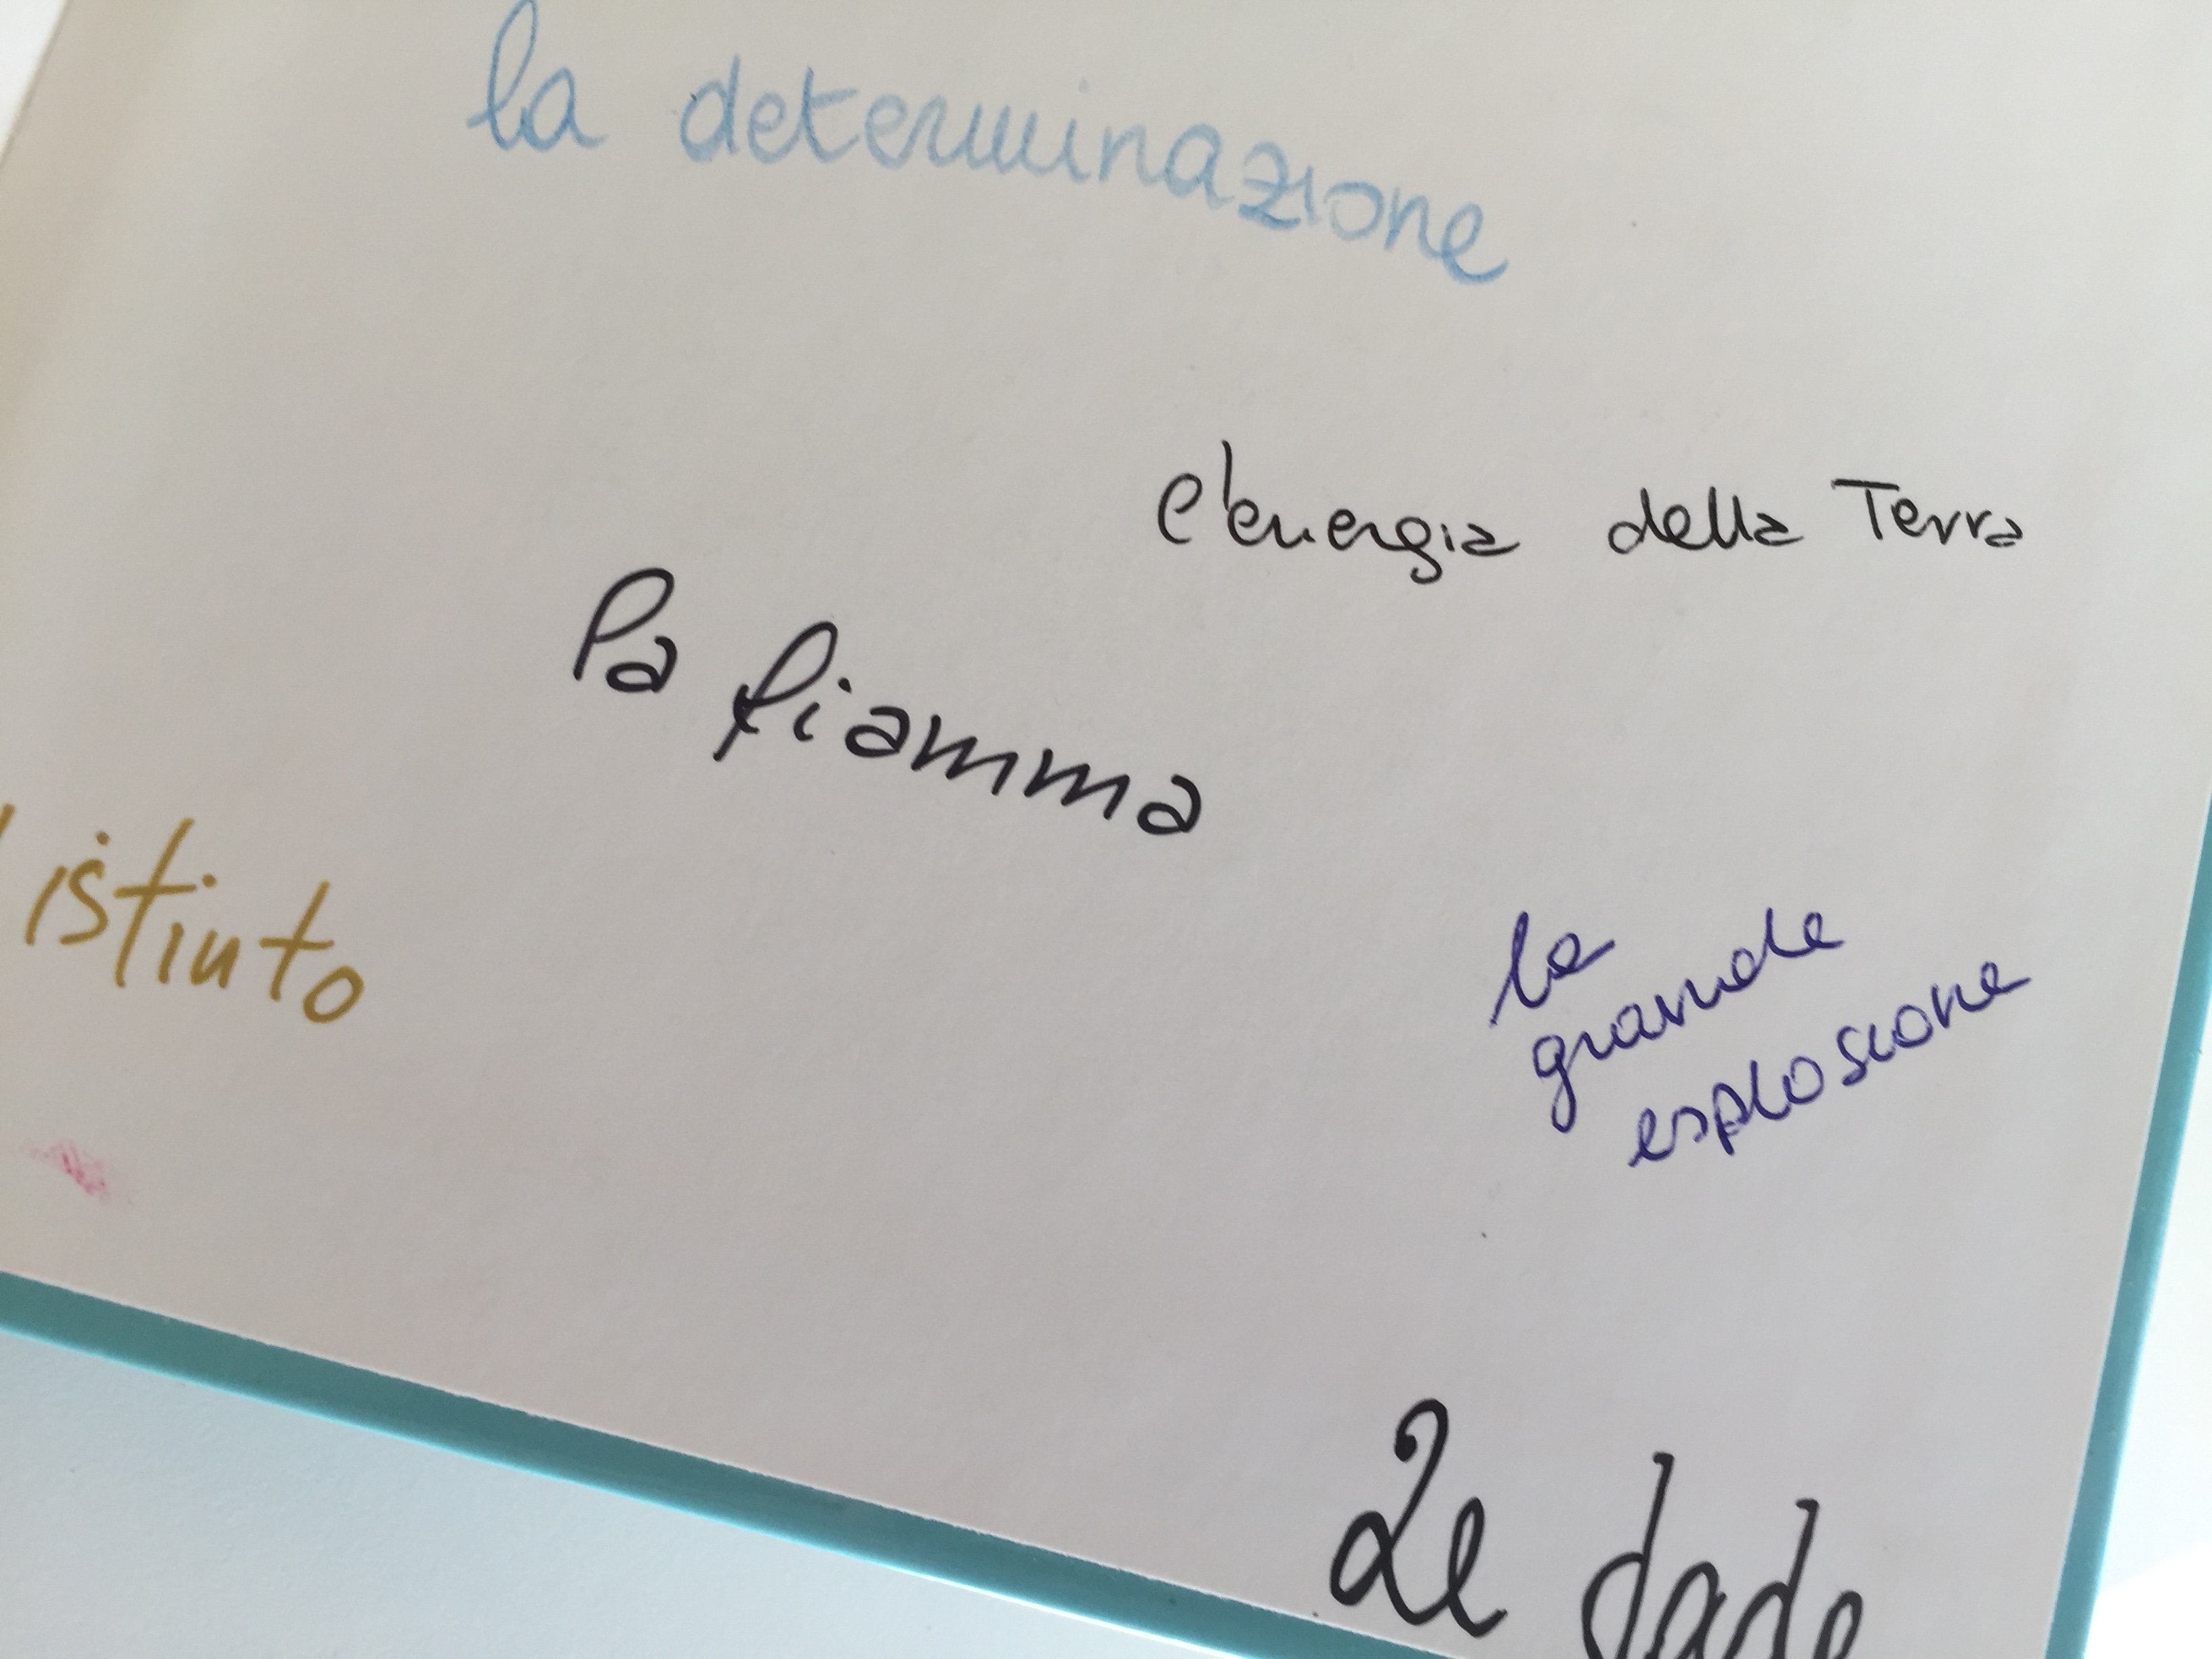 la determinazione
l'energia della Terra
la fiamma
istinto
la
grande
esplosione
Le